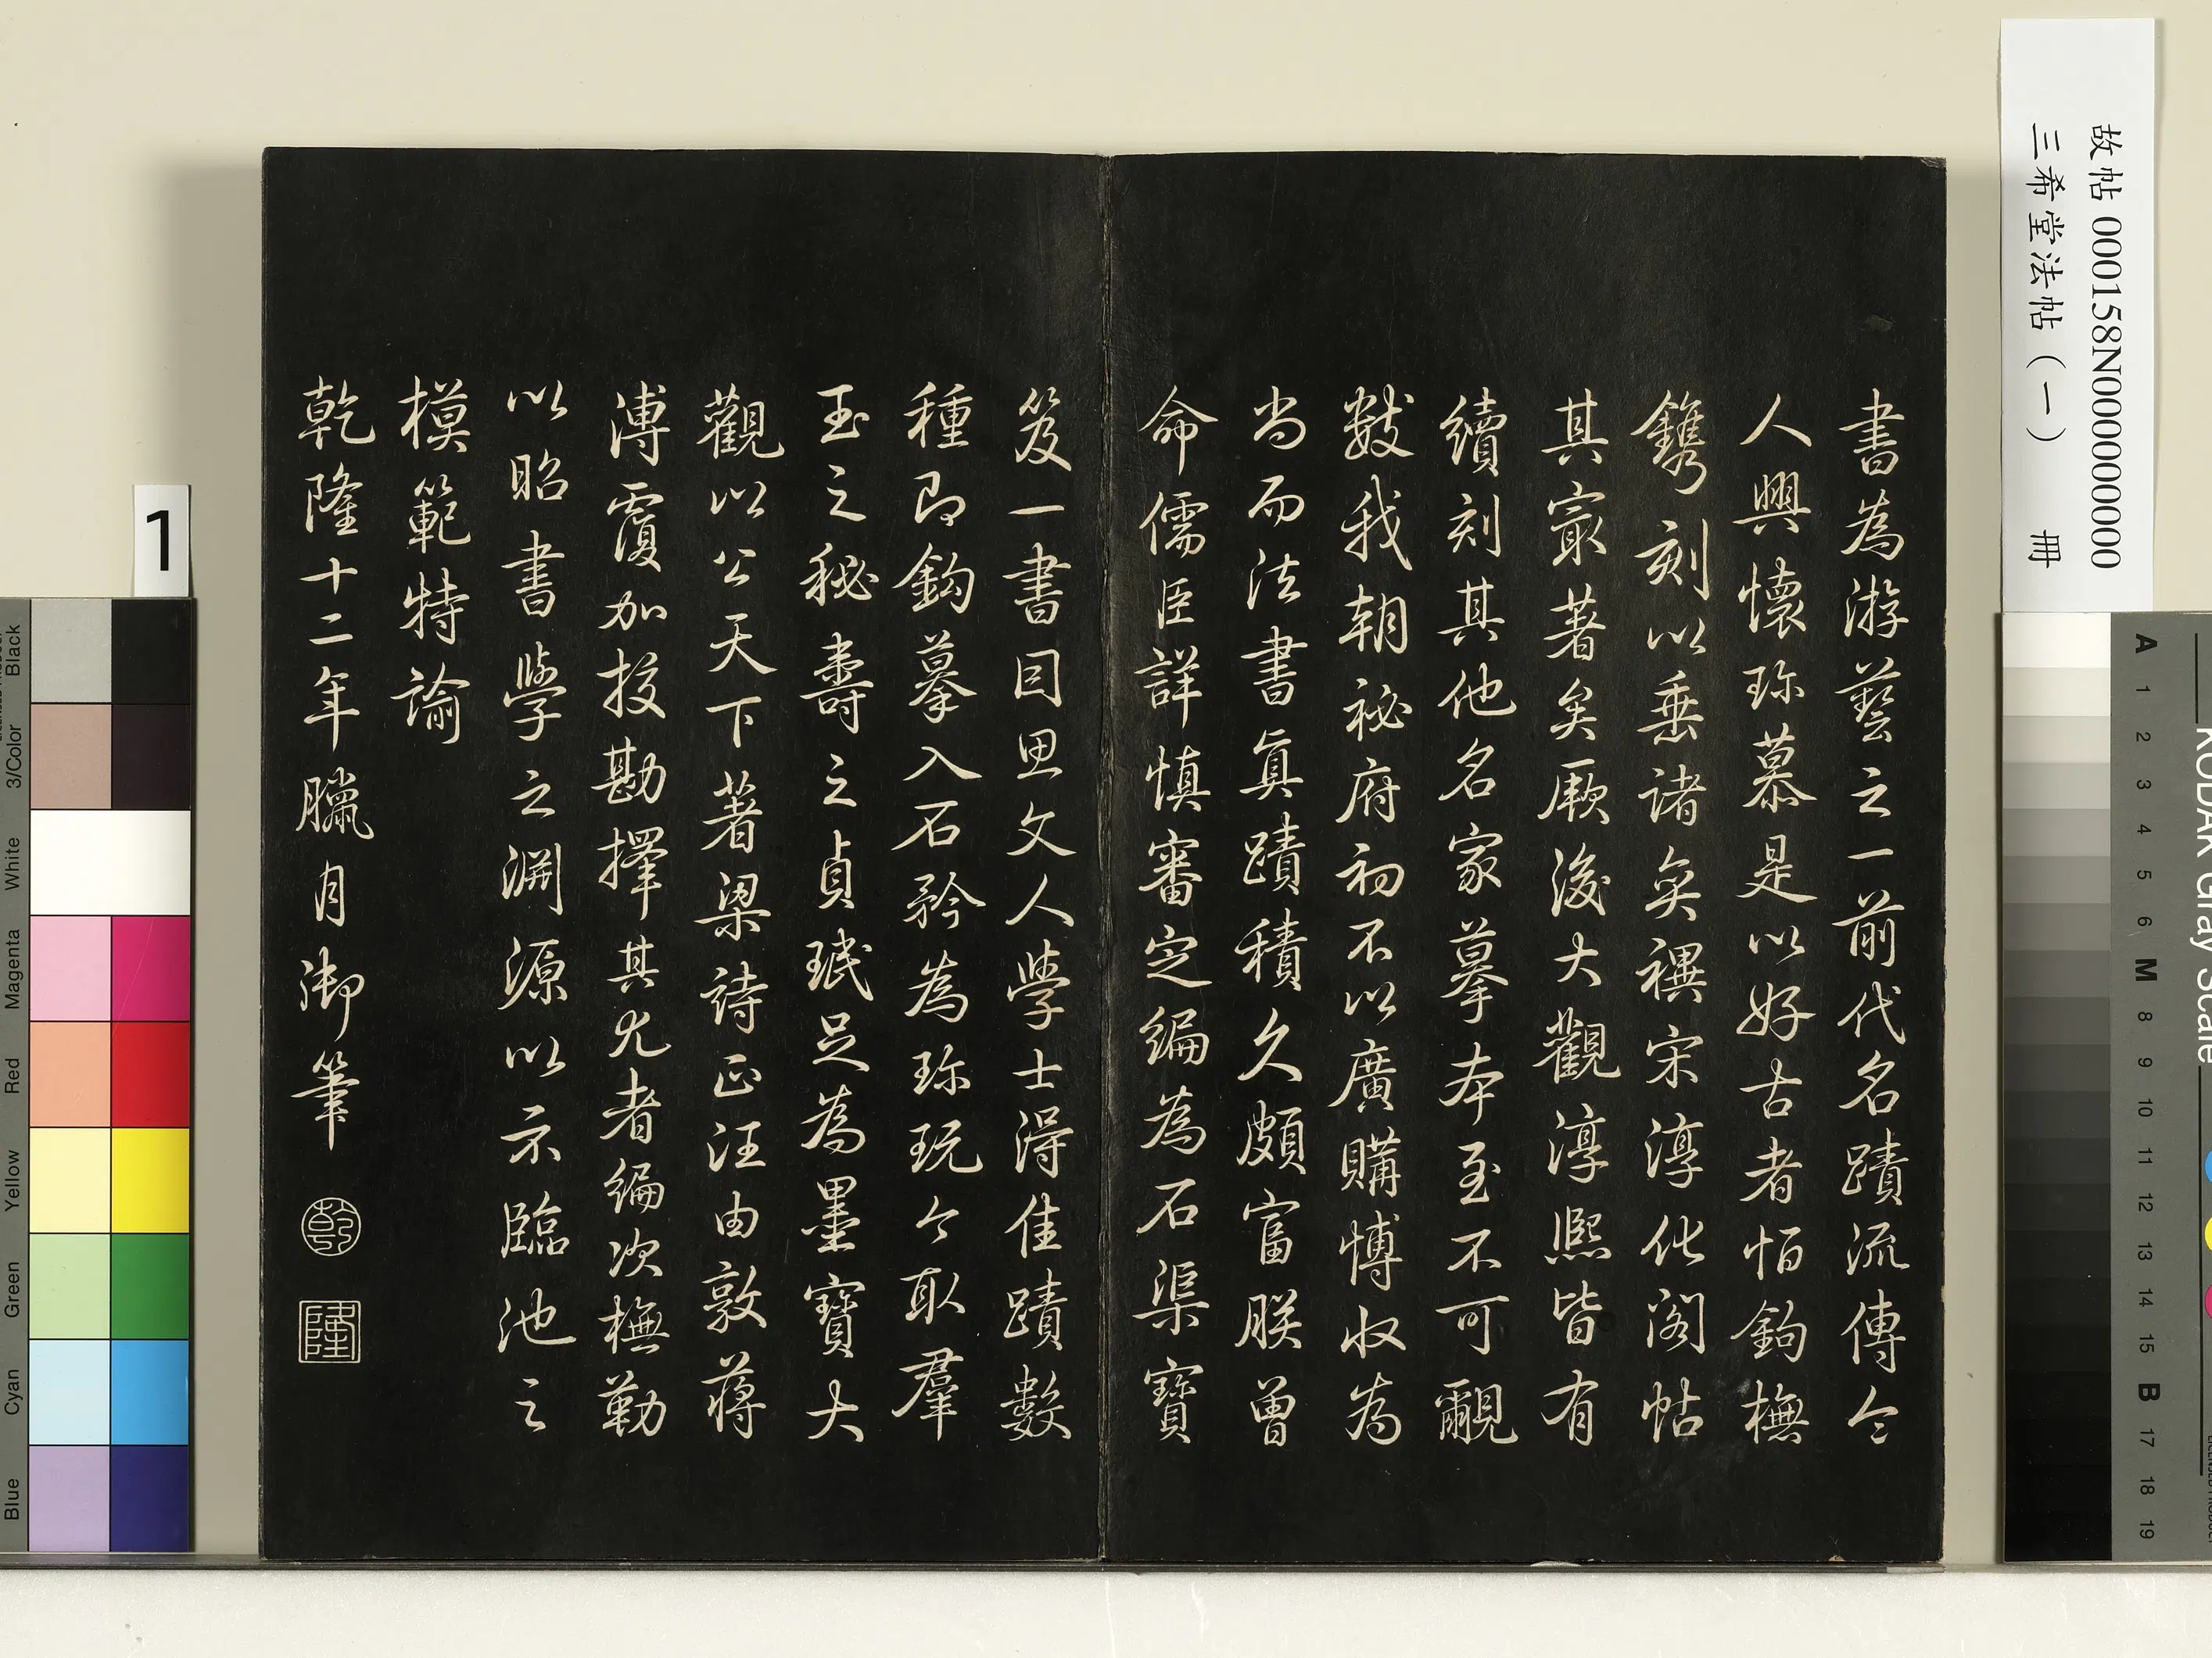 書為游藝之一前代名蹟流傳令
人興懷珎慕是以好古者恒鉤橅
鐫刻以垂諸奕禩宋淳化閣帖
其最著矣厥後大觀淳熙皆有
續刻其他名家摹本至不可覼
數我朝祕府初不以廣購愽收為
尚而法書真蹟積久頗富朕曾
命儒臣詳慎審定編為石渠寶
笈一書因思文人學士得佳蹟數
種即鈎摹入石矜為珎玩今取羣
玉之秘壽之貞珉足為墨寶大
觀以公天下著梁詩正汪由敦蔣
溥覆加挍勘擇其尤者編次橅勒
以昭書學之淵源以示臨池之
模範特諭
乾隆十二年臘月御筆
乾
隆
故帖 000158N000000000
三希堂法帖（一） 冊
1
Black
3/Color
White
Magenta
Red
Yellow
Green
Cyan
Blue
KODAK Gray Scale
A 1 2 3 4 5 6 M 8 9 10 11 12 13 14 15 B 17 18 19